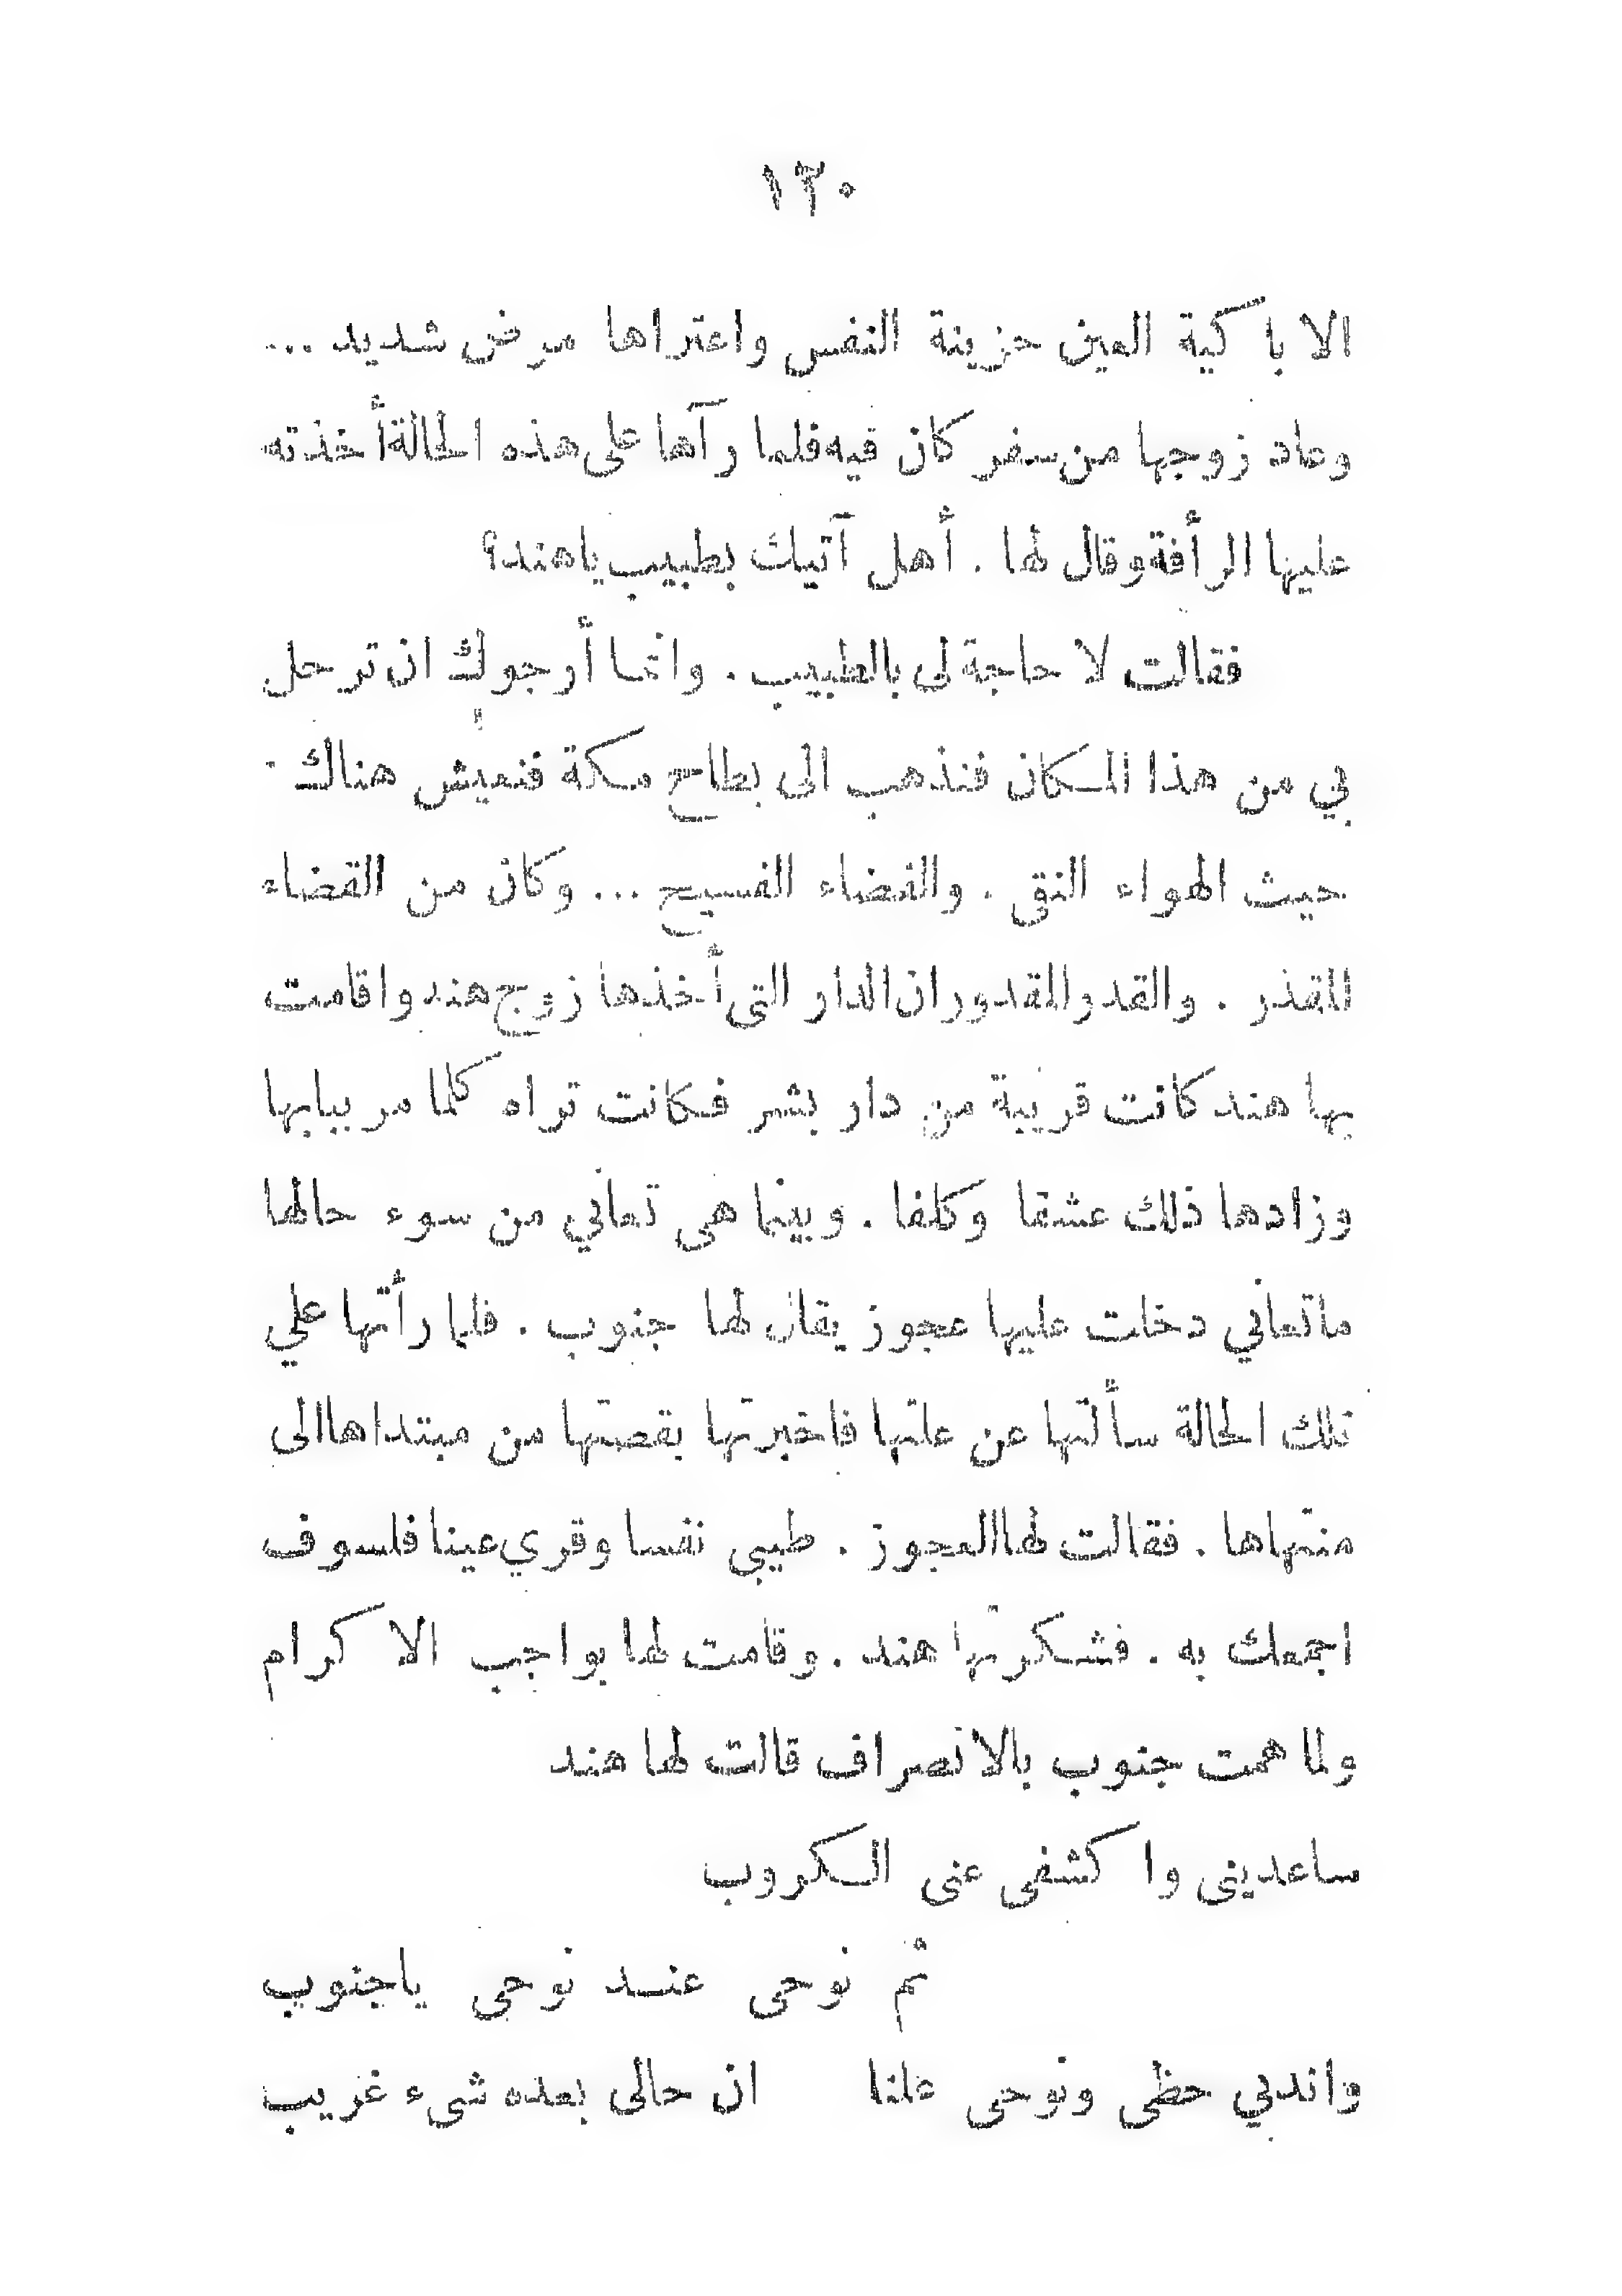 ١٣٠
الا باكية العين حزينة النفس واعتراها مرض شديد ...
وعاد زوجها من سفر كان فيه فلما رآها على هذه الحالة أخذته
عليها الرأفة وقال لها . أهل آتيك بطبيب ياهند؟
فقالت لا حاجة لى بالطبيب . وانما أرجوك ان ترحل
بي من هذا المكان فنذهب الى بطاح مكة فنعيش هناك .
حيث الهواء النقى . والفضاء الفسيح ... وكان من القضاء
المقذر . والقد والمقدور ان الدار التى أخذها زوج هند واقامت
بها هند كانت قريبة من دار بشر فكانت تراه كلما مر ببابها
وزادها ذلك عشقا وكلفا . وبينما هى تعاني من سوء حالها
ماتعاني دخلت عليها عجوز يقال لها جنوب . فلما رأتها علي
تلك الحالة سألتها عن علتها فاخبرتها بقصتها من مبتداها الى
منتهاها . فقالت لها العجوز . طيبى نفسا وقري عينا فلسوف
اجمعك به . فشكرتها هند . وقامت لها بواجب الاكرام
ولما همت جنوب بالانصراف قالت لها هند
ساعدينى واكشفى عنى الكروب
ثم نوحى عند نوحى ياجنوب
واندبي حظى ونوحى علنا ان حالى بعده شىء غريب